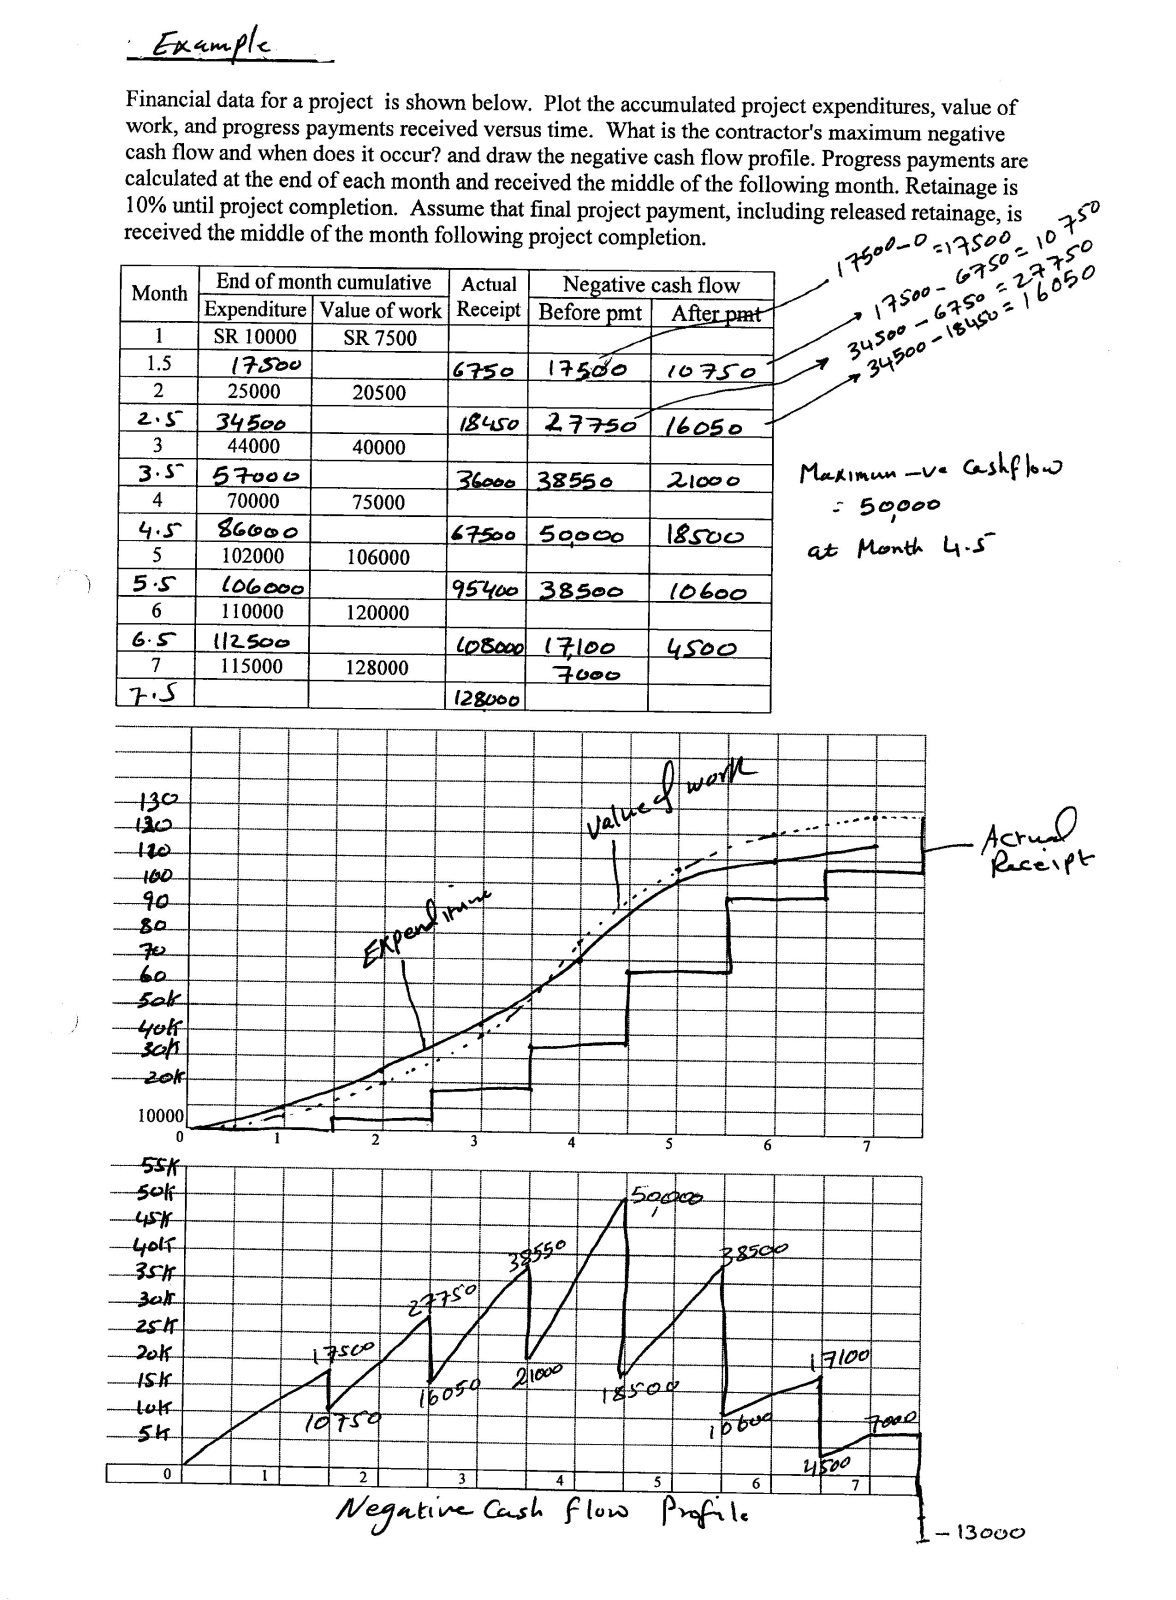 Example
Financial data for a project is shown below. Plot the accumulated project expenditures, value of
work, and progress payments received versus time. What is the contractor's maximum negative
cash flow and when does it occur? and draw the negative cash flow profile. Progress payments are
calculated at the end of each month and received the middle of the following month. Retainage is
10% until project completion. Assume that final project payment, including released retainage, is
received the middle of the month following project completion.
17500-0 =17500
17500 - 6750 = 10750
34500 - 6750 = 27750
34500 - 18450 = 16050
Month End of month cumulative Actual Negative cash flow
Expenditure Value of work Receipt Before pmt After pmt
1 SR 10000 SR 7500
1.5 17500 6750 17500 10750
2 25000 20500
2.5 34500 18450 27750 16050
3 44000 40000
3.5 57000 36000 38550 21000
4 70000 75000
4.5 86000 67500 50,000 18500
5 102000 106000
5.5 106000 95400 38500 10600
6 110000 120000
6.5 112500 108000 17,100 4500
7 115000 128000 7000
7.5 128000
Maximun -ve Cashflow
= 50,000
at Month 4.5
130
130
120
100
90
80
70
60
50K
40K
30K
20K
10000
0 1 2 3 4 5 6 7
Value of work
Expenditure
Actual
Receipt
55K
50K
45K
40K
35K
30K
25K
20K
15K
10K
5K
0 1 2 3 4 5 6 7
17500
10750
27750
16050
38550
21000
50,000
18500
38500
10600
17100
4500
7000
-13000
Negative Cash flow Profile